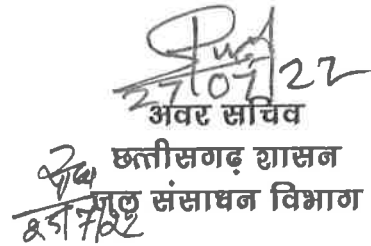 27/07/22
अवर सचिव
छत्तीसगढ़ शासन
जल संसाधन विभाग